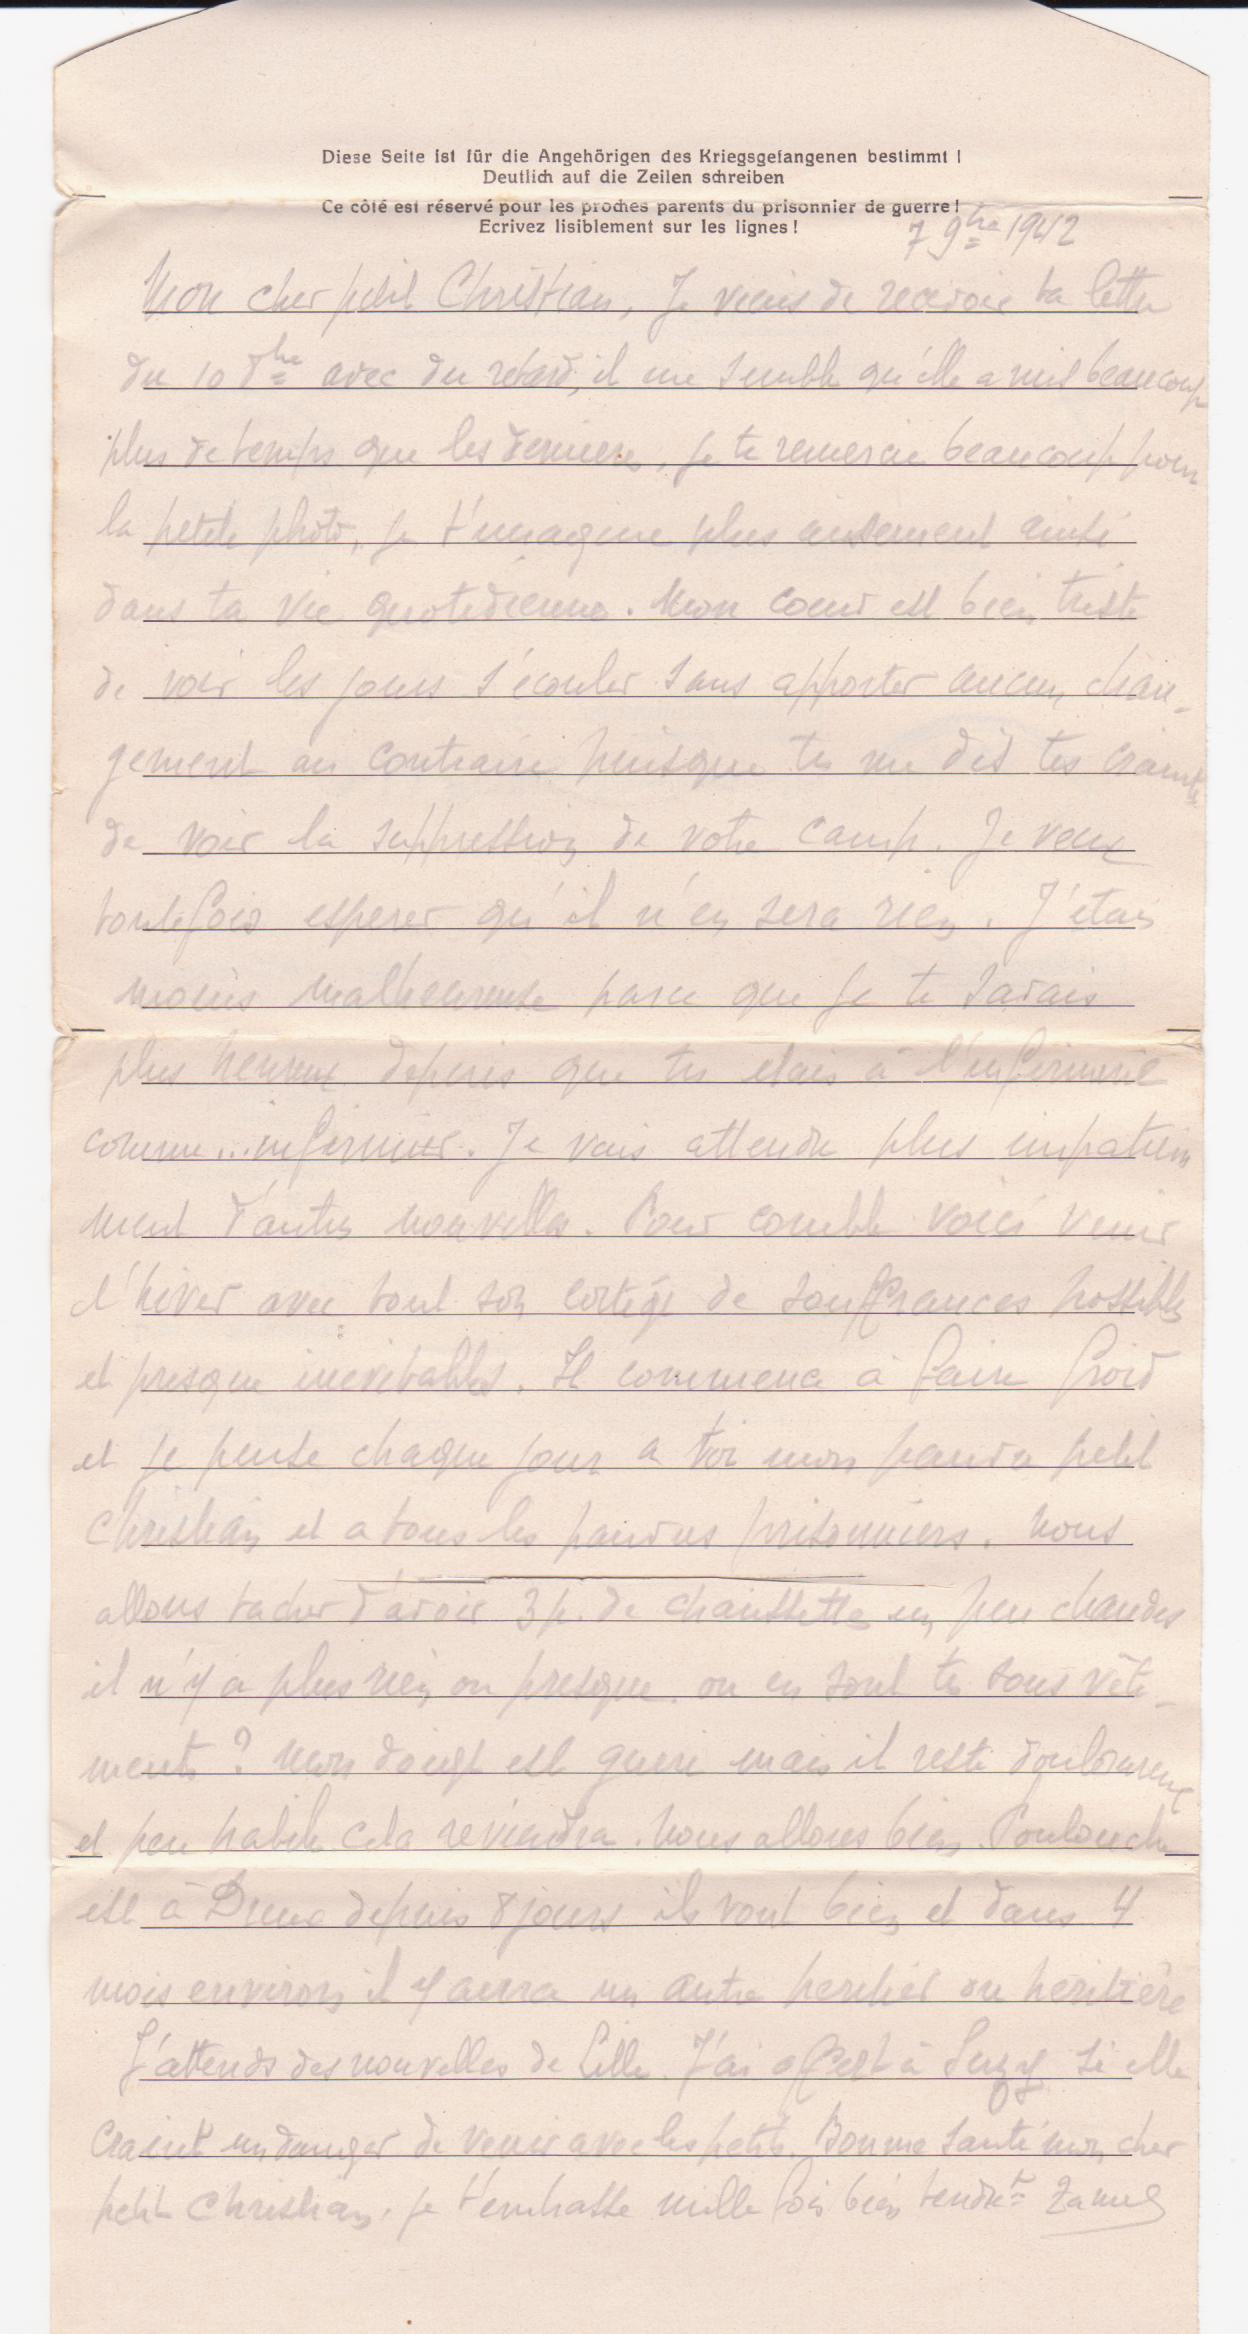 Diese Seite ist für die Angehörigen des Kriegsgefangenen bestimmt !
Deutlich auf die Zeilen schreiben
Ce côté est réservé pour les proches parents du prisonnier de guerre !
Ecrivez lisiblement sur les lignes !
7 9bre 1942
Mon cher petit Christian, Je viens de recevoir ta lettre
du 10 8bre avec du retard, il me semble qu'elle a mis beaucoup
plus de temps que les dernieres, je te remercie beaucoup pour
la petite photo, je t'imagine plus aisement ainsi
dans ta vie quotidienne. Mon coeur est bien triste
de voir les jours s'écouler sans apporter aucun chan-
gement au contraire puisque tu me dis tes craintes
de voir la suppression de votre camp. Je veux
toutefois esperer qu'il n'en sera rien. J'étais
moins malheureuse parce que je te savais
plus heureux depuis que tu etais à l'infirmerie
comme... infirmier. Je vais attendre plus impatiem
ment d'autres nouvelles. Pour comble voici venir
l'hiver avec tout son cortège de souffrances possibles
et presque inevitables. Il commence à faire froid
et je pense chaque jour a toi mon pauvre petit
Christian et a tous les pauvres prisonniers. Nous
allons tacher d'avoir 3 p. de chaussettes un peu chaudes
il n'y a plus rien ou presque. ou en sont tes sous vête-
ments ? Mon doigt est gueri mais il reste douloureux
et peu habile cela reviendra. Nous allons bien. Poulouche
est à Dreux depuis 8 jours ils vont bien et dans 4
mois environ il y aura un autre heritier ou héritière
J'attends des nouvelles de Lille. J'ai offert à Suzy si elle
craint un danger de venir avec les petits. Bonne santé mon cher
petit Christian, je t'embrasse mille fois bien tendrt